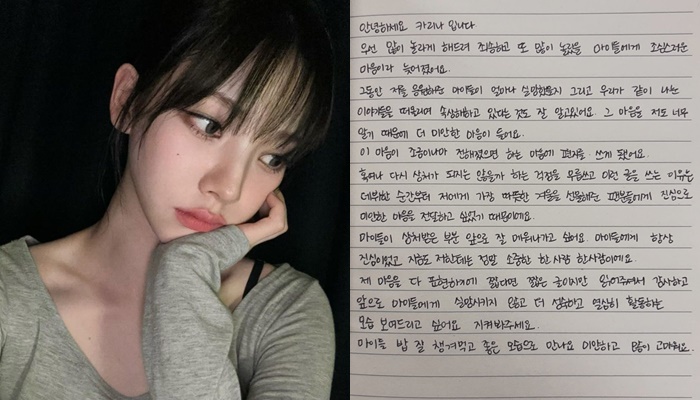 안녕하세요 카리나 입니다
우선 많이 놀라게 해드려 죄송하고 또 많이 놀랐을 마이들에게 조심스러운
마음이라 늦어졌어요.
그동안 저를 응원해준 마이들이 얼마나 실망했을지 그리고 우리가 같이 나눈
이야기들을 떠올리며 속상해하고 있다는 것도 잘 알고있어요. 그 마음을 저도 너무
알기 때문에 더 미안한 마음이 들어요.
이 마음이 조금이나마 전해졌으면 하는 마음에 편지를 쓰게 됐어요.
혹여나 다시 상처가 되지는 않을까 하는 걱정을 무릅쓰고 이런 글을 쓰는 이유는
데뷔한 순간부터 저에게 가장 따뜻한 겨울을 선물해준 팬분들에게 진심으로
미안한 마음을 전달하고 싶었기 때문이에요.
마이들이 상처받은 부분 앞으로 잘 메워나가고 싶어요. 마이들에게 항상
진심이었고 지금도 저한테는 정말 소중한 한 사람 한사람이에요.
제 마음을 다 표현하자기에 짧다면 짧은 글이지만 읽어주셔서 감사하고
앞으로 마이들에게 실망시키지 않고 더 성숙하고 열심히 활동하는
모습 보여드리고 싶어요 지켜봐주세요.
마이들 밥 잘 챙겨먹고 좋은 모습으로 만나요 미안하고 많이 고마워요.